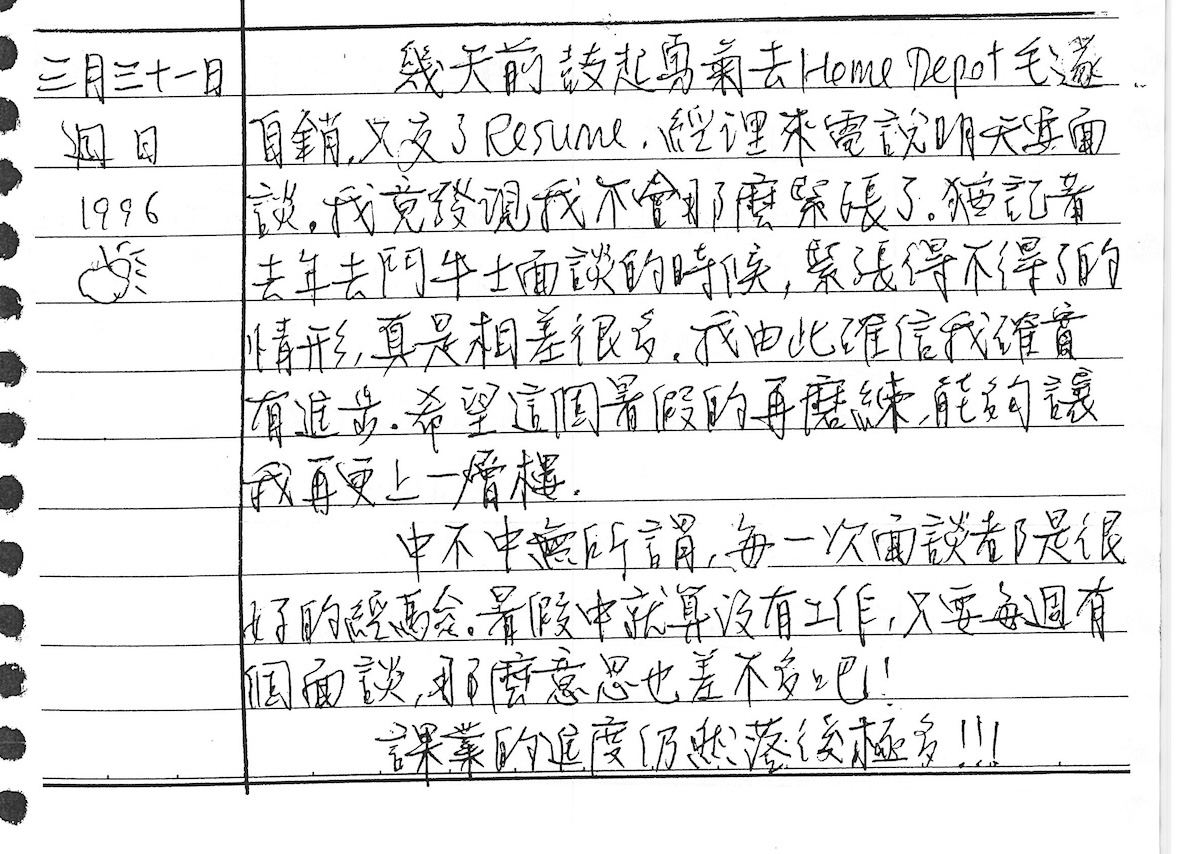 三月三十一日
週日
1996
幾天前鼓起勇氣去Home Depot毛遂
自銷,只交了Resume.經理來電說明天要面
談.我竟發現我不會那麼緊張了.猶記著
去年去鬥牛士面談的時候,緊張得不得了的
情形,真是相差很多.我由此確信我確實
有進步.希望這個暑假的再磨練,能夠讓
我再更上一層樓.
中不中無所謂,每一次面談都是很
好的經驗.暑假中就算沒有工作,只要每週有
個面談,那麼意思也差不多吧!
課業的進度仍然落後極多!!!